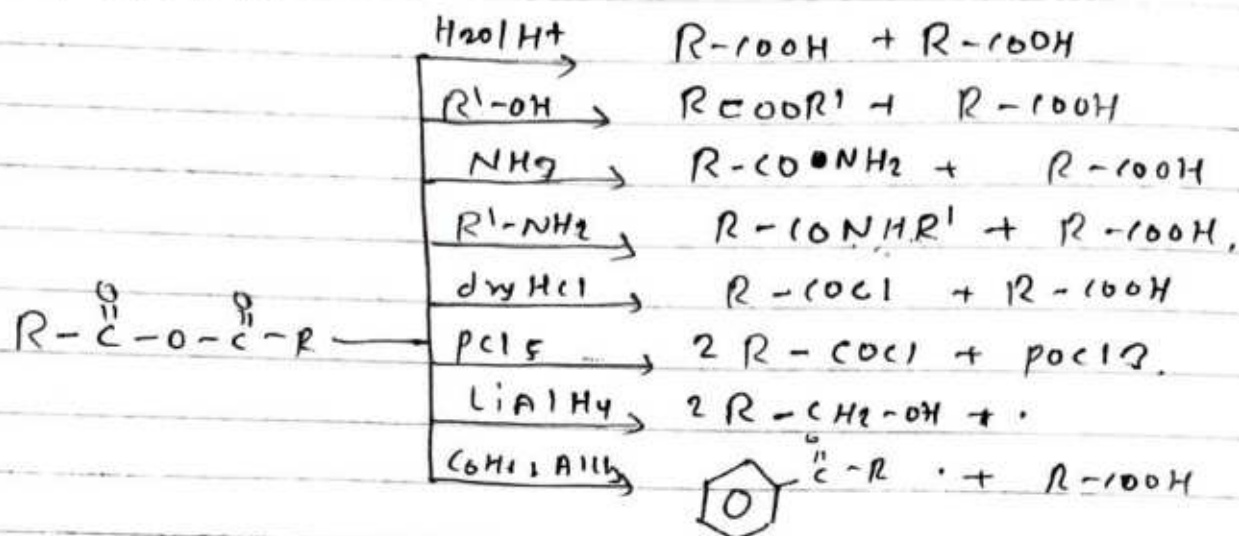 H2O/H+ R-COOH + R-COOH
R'-OH RCOOR' + R-COOH
NH3 R-CONH2 + R-COOH
R'-NH2 R-CONHR' + R-COOH.
dry HCl R-COCl + R-COOH
R-C(=O)-O-C(=O)-R
PCl5 2 R-COCl + POCl3.
LiAlH4 2 R-CH2-OH + .
C6H6, AlCl3 O C(=O)-R . + R-COOH